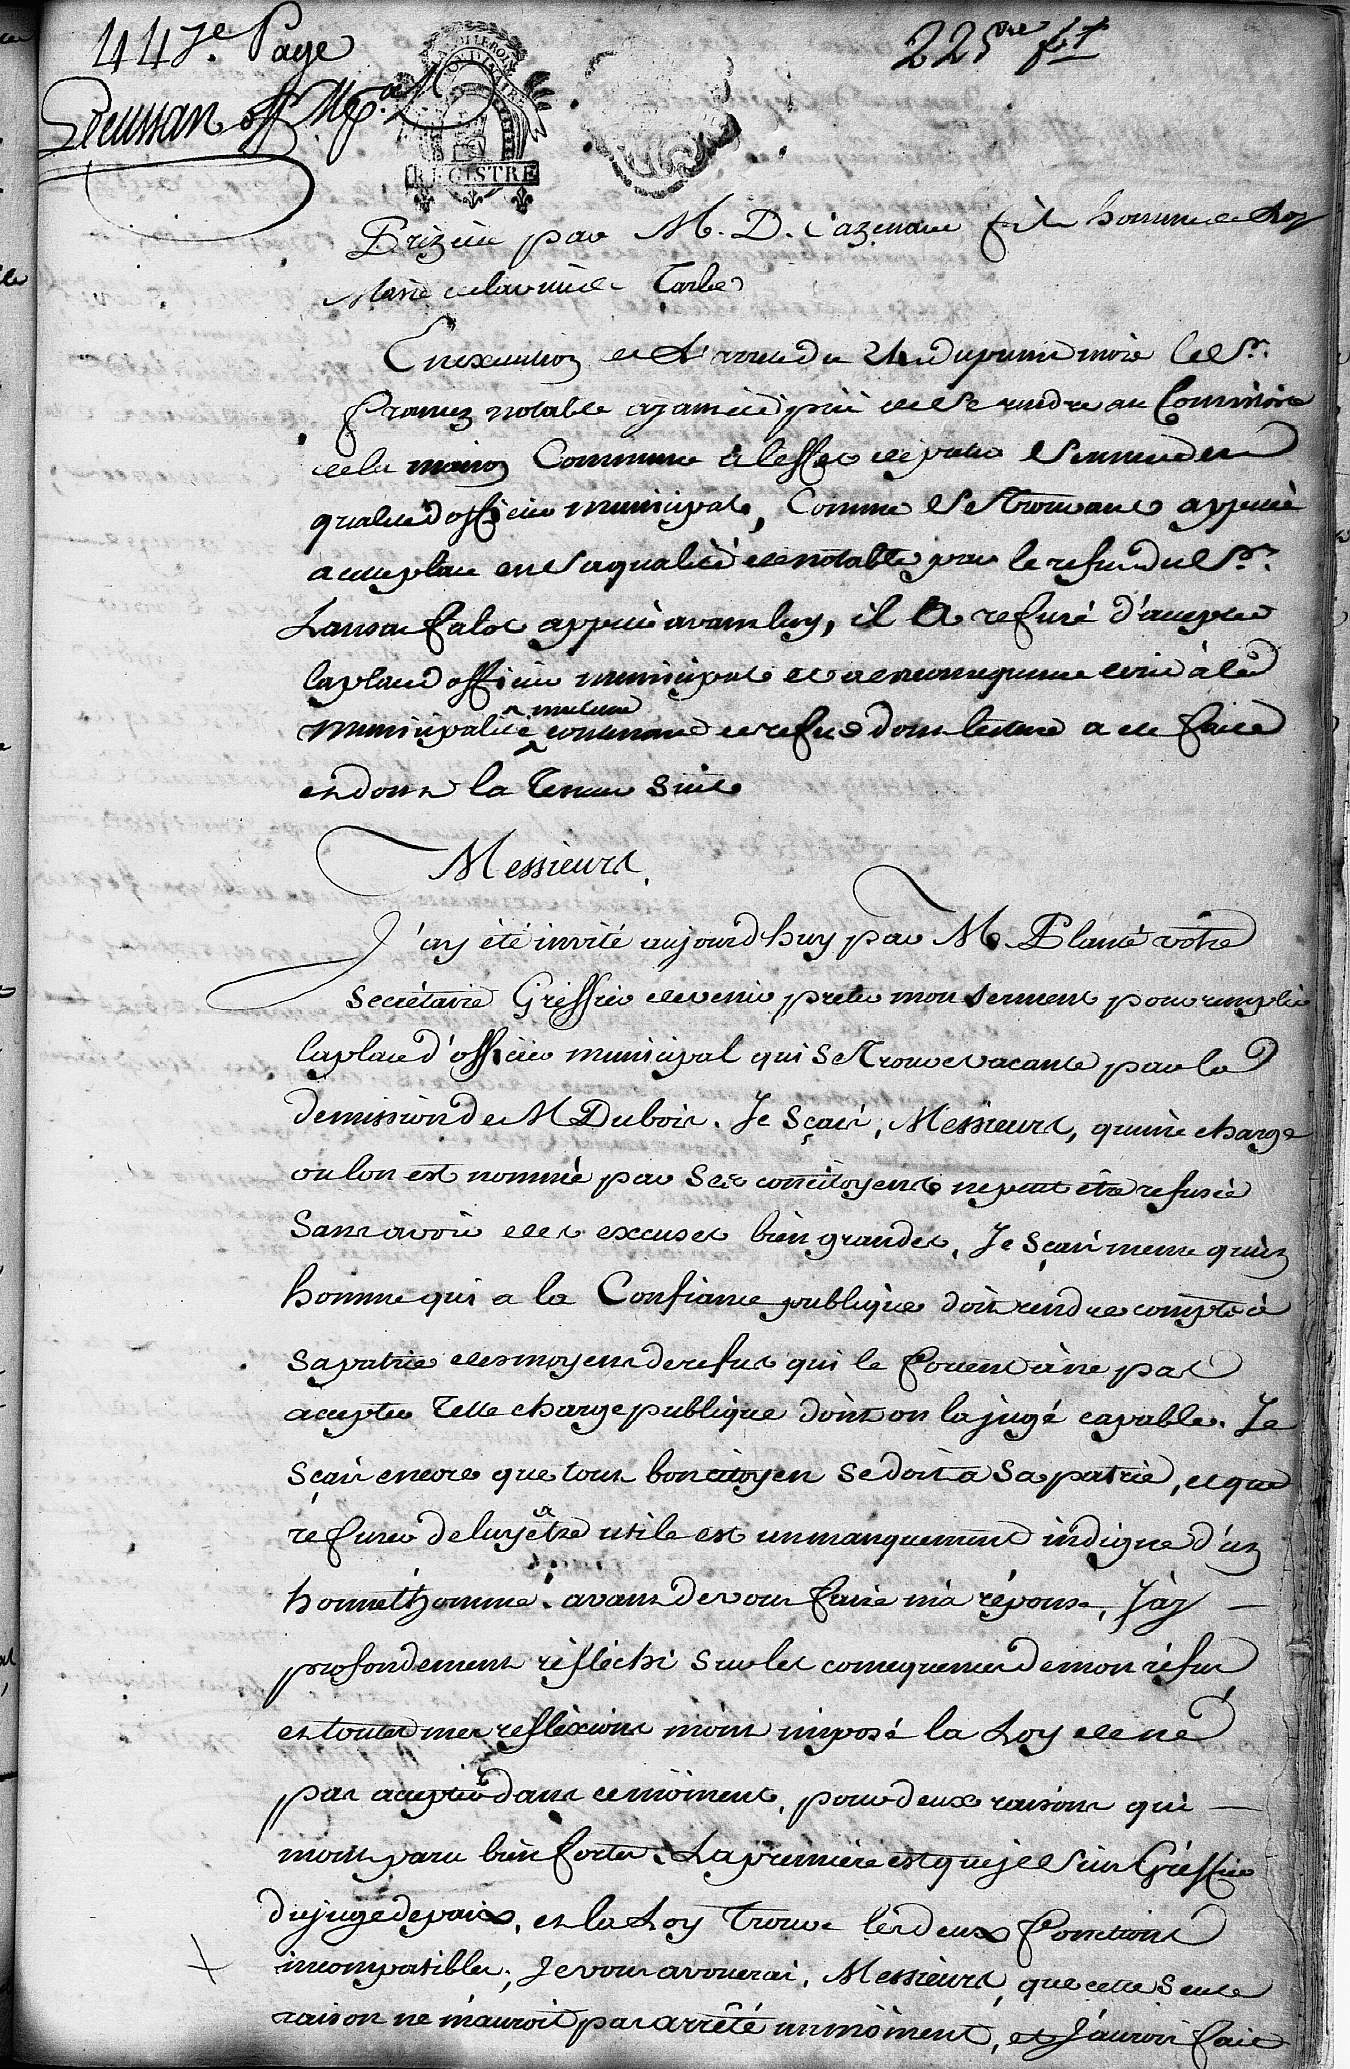 447e. Page
225me ft
Peussan off. Mpal
REGISTRE
Prezidée par M. D. Cazenave fils homme de Loy
Maire de la ville Tarbes
En execution de l'arretté du 24 du prnt mois le Sr.
Pramez notable ayant été prié de se rendre au Consistoire
de la maison Commune à l'effet de preter serment en
qualité d'officier municipal, Comme se trouvant appellé
a cette place en sa qualité de notable par le refus du Sr.
Lansac falot appellé avant luy, il a refusé d'accepter
la place d'officier municipal et a en consequence ecrit à la
municipalité une lettre contenant ce refus dont lecture a été faite
et dont la teneur suit
Messieurs,
J'ay été invité aujourd'huy par M. Planté vôtre
Secrétaire Greffier de venir preter mon serment pour remplir
la place d'officier municipal qui se trouve vacante par la
demission de M Dubois. Je sçais, Messieurs, qu'une charge
ou lon est nommé par ses concitoyens ne peut être refusée
sans avoir des excuses bien grandes, Je sçais meme qu'un
homme qui a la Confiance publique doit rendre compte à
sa patrie des moyens de refus qui le forcent à ne pas
accepter telle charge publique dont on la jugé capable. Je
sçais encore que tout bon citoyen se doit a sa patrie, et que
refuser de luy être utile est un manquement indigne d'un
honnêt'homme. avant de vous faire ma réponse, J'ay
profondement réfléchi sur les consequences de mon réfus
et toutes mes reflexions m'ont imposé la Loy de ne
pas accepter dans ce môment, pour deux raisons qui
m'ont paru bien fortes. La premiere est que je suis Gréffier
du juge de paix, et la Loy trouve les deux fonctions
incompatibles; Je vous avouerai, Messieurs, que cette seule
raison ne m'auroit pas arrêté un môment, et J'aurois fait